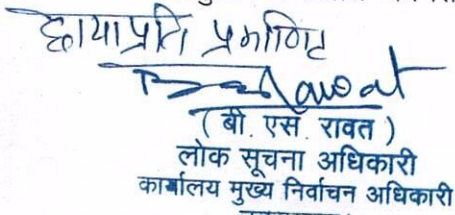 छायाप्रति प्रमाणित
Rawat
( बी. एस. रावत )
लोक सूचना अधिकारी
कार्यालय मुख्य निर्वाचन अधिकारी